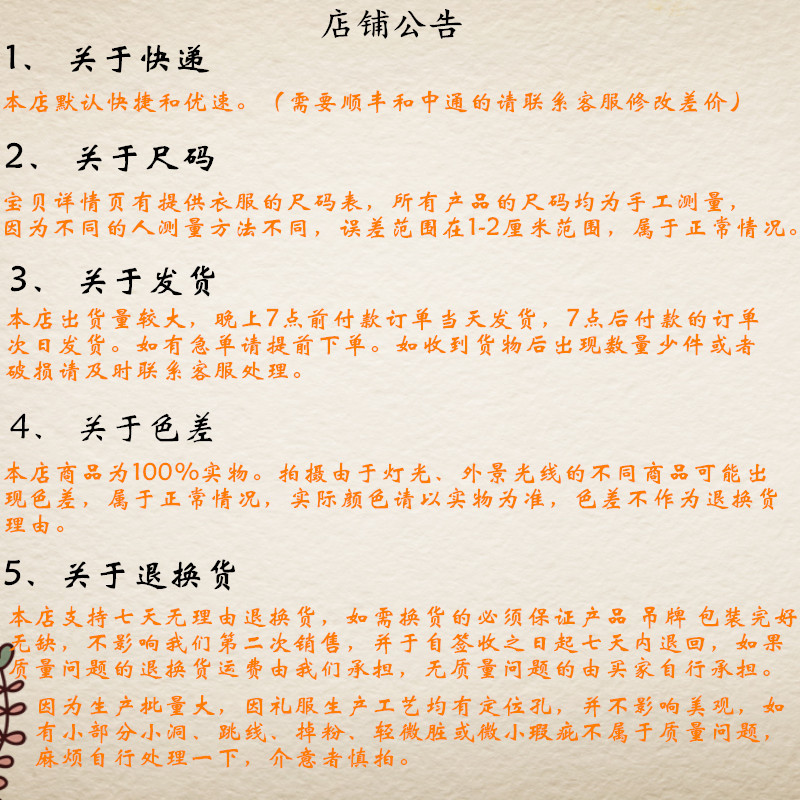 店铺公告
1、 关于快递
本店默认快捷和优速。（需要顺丰和中通的请联系客服修改差价）
2、 关于尺码
宝贝详情页有提供衣服的尺码表，所有产品的尺码均为手工测量，
因为不同的人测量方法不同，误差范围在1-2厘米范围，属于正常情况。
3、 关于发货
本店出货量较大，晚上7点前付款订单当天发货，7点后付款的订单
次日发货。如有急单请提前下单。如收到货物后出现数量少件或者
破损请及时联系客服处理。
4、 关于色差
本店商品为100%实物。拍摄由于灯光、外景光线的不同商品可能出
现色差，属于正常情况，实际颜色请以实物为准，色差不作为退换货
理由。
5、关于退换货
本店支持七天无理由退换货，如需换货的必须保证产品 吊牌 包装完好
无缺，不影响我们第二次销售，并于自签收之日起七天内退回，如果
质量问题的退换货运费由我们承担，无质量问题的由买家自行承担。
因为生产批量大，因礼服生产工艺均有定位孔，并不影响美观，如
有小部分小洞、跳线、掉粉、轻微脏或微小瑕疵不属于质量问题，
麻烦自行处理一下，介意者慎拍。